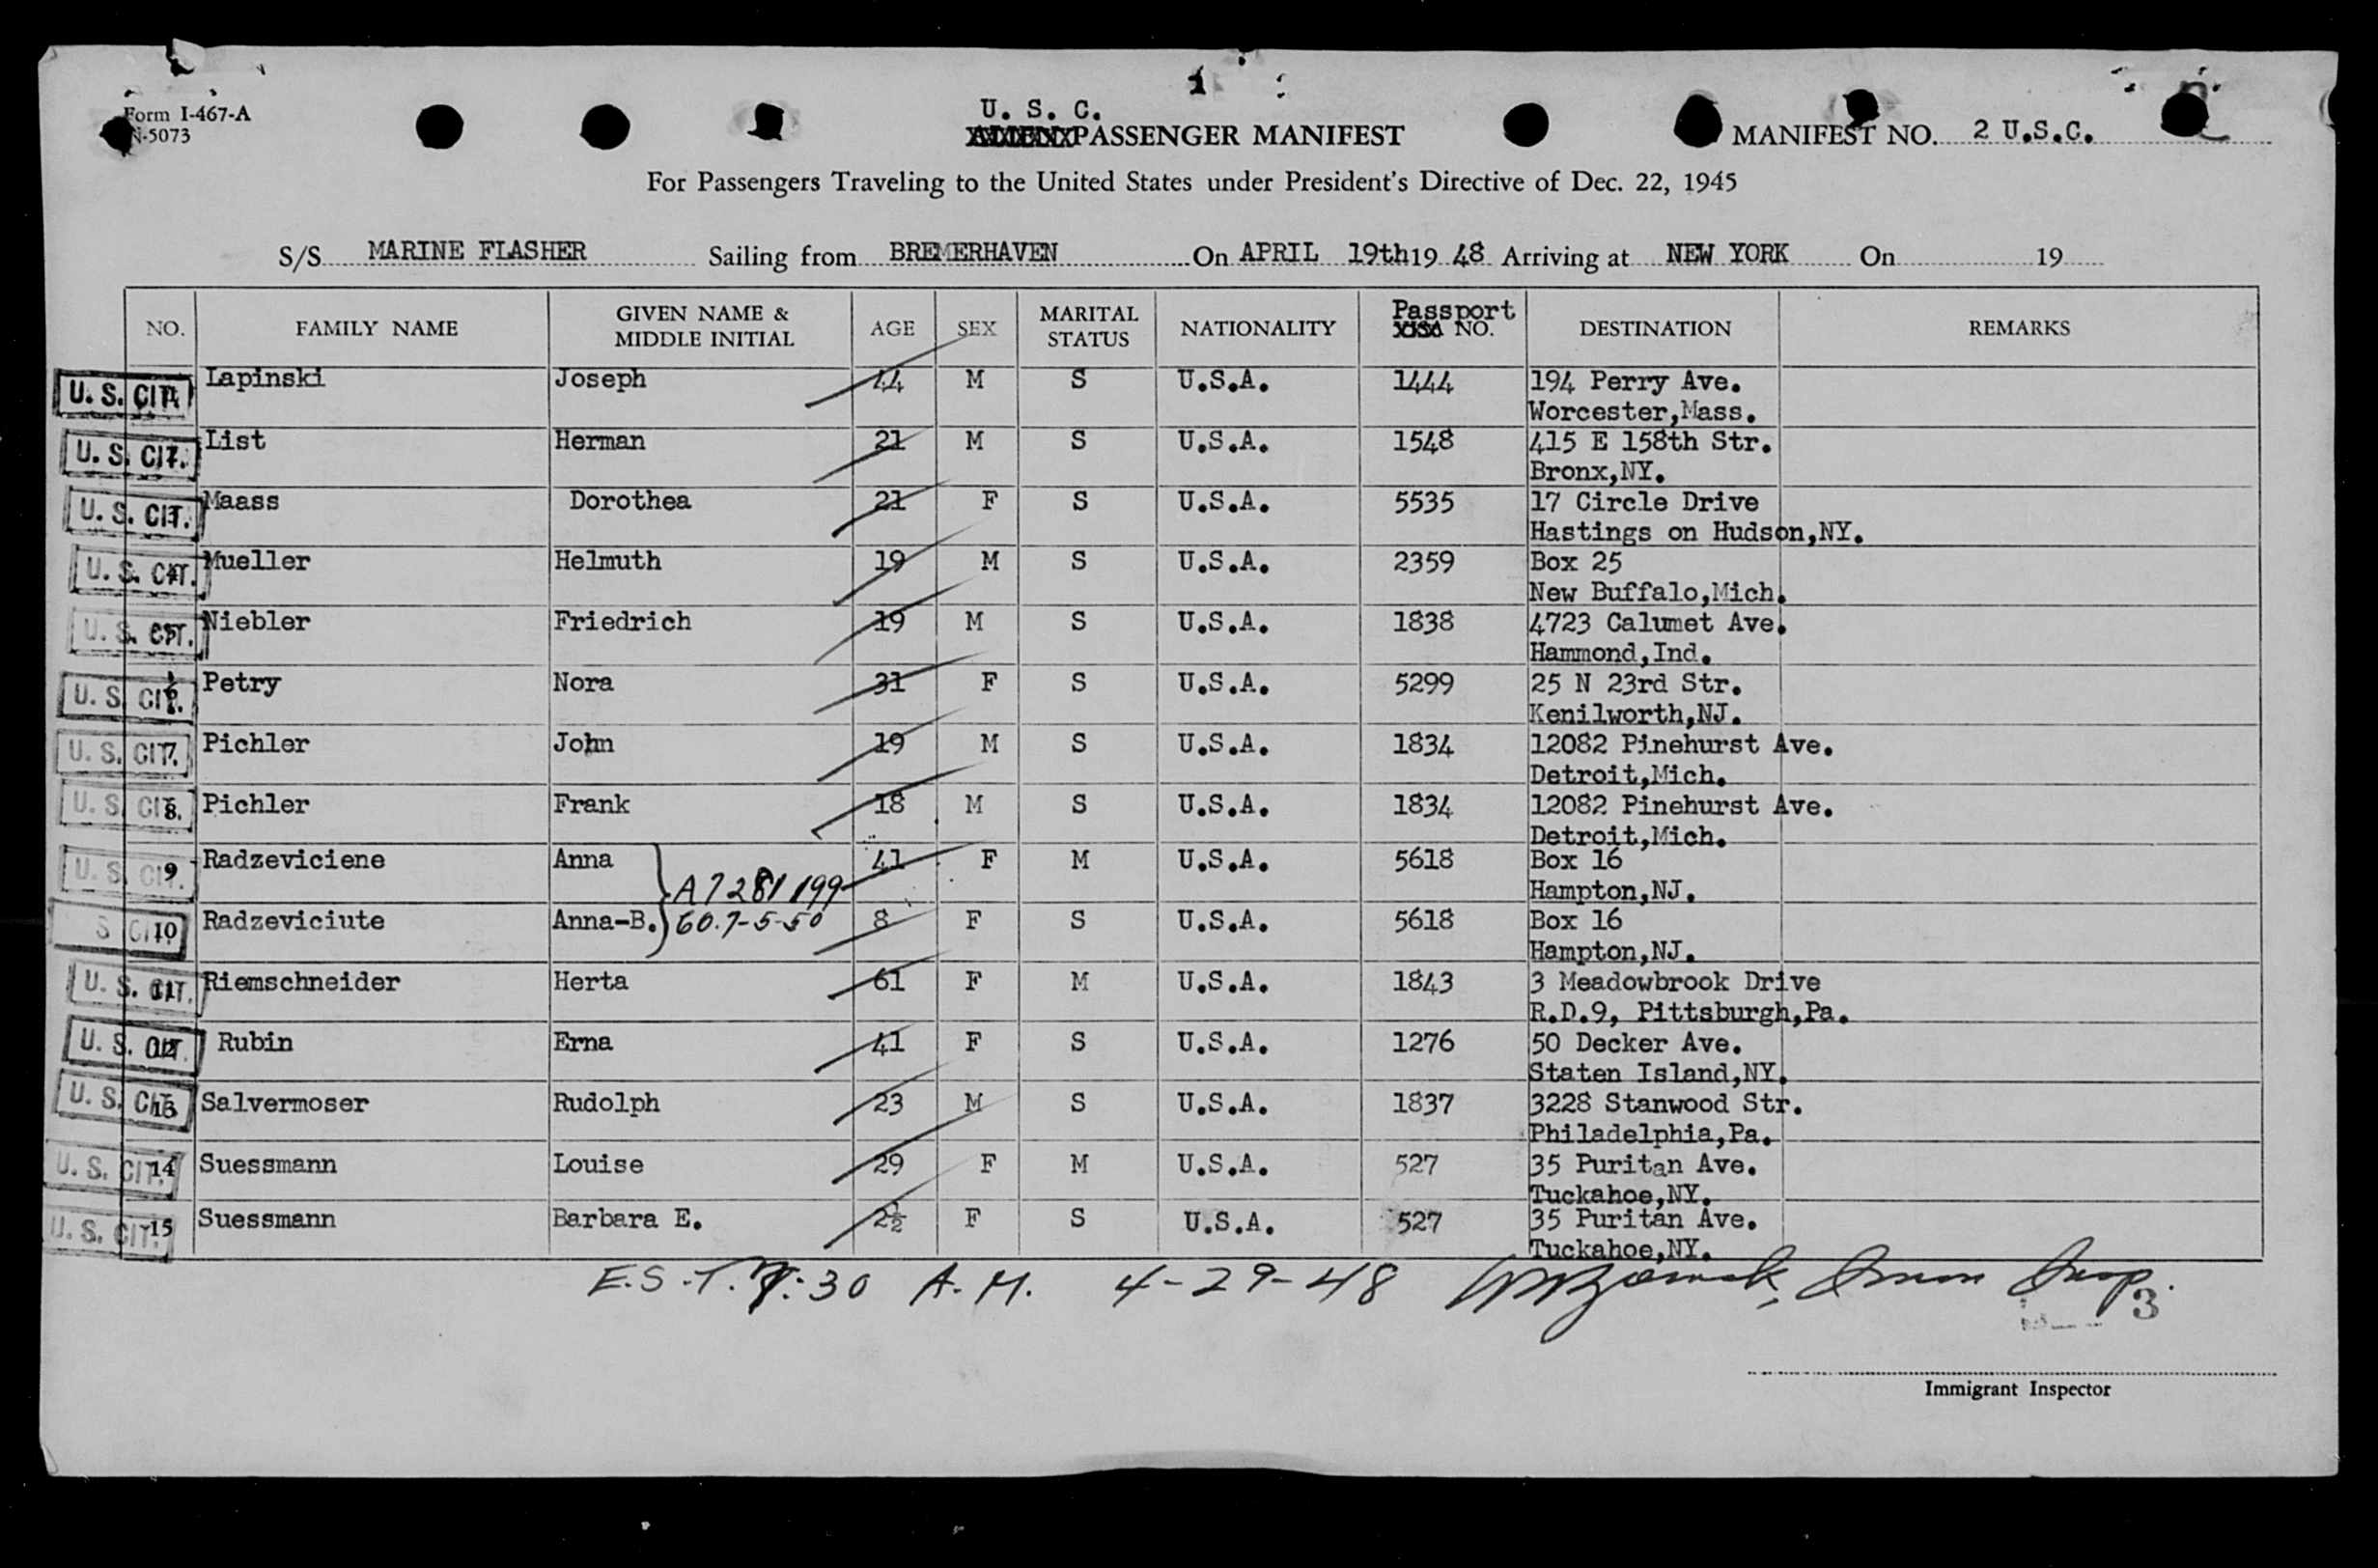 Form I-467-A
N-5073
U. S. C.
PASSENGER MANIFEST
MANIFEST NO. 2 U.S.C.
For Passengers Traveling to the United States under President's Directive of Dec. 22, 1945
S/S MARINE FLASHER Sailing from BREMERHAVEN On APRIL 19th 19 48 Arriving at NEW YORK On 19
NO. FAMILY NAME GIVEN NAME & MIDDLE INITIAL AGE SEX MARITAL STATUS NATIONALITY Passport NO. DESTINATION REMARKS
U. S. CIT. Lapinski Joseph 44 M S U.S.A. 1444 194 Perry Ave.
Worcester,Mass.
U. S. CIT. List Herman 21 M S U.S.A. 1548 415 E 158th Str.
Bronx,NY.
U. S. CIT. Maass Dorothea 21 F S U.S.A. 5535 17 Circle Drive
Hastings on Hudson,NY.
U. S. CIT. Mueller Helmuth 19 M S U.S.A. 2359 Box 25
New Buffalo,Mich.
U. S. CIT. Niebler Friedrich 19 M S U.S.A. 1838 4723 Calumet Ave.
Hammond,Ind.
U. S. CIT. Petry Nora 31 F S U.S.A. 5299 25 N 23rd Str.
Kenilworth,NJ.
U. S. CIT. 7 Pichler John 19 M S U.S.A. 1834 12082 Pinehurst Ave.
Detroit,Mich.
U. S. CIT. 8. Pichler Frank 18 M S U.S.A. 1834 12082 Pinehurst Ave.
Detroit,Mich.
U. S. CIT. 9 Radzeviciene Anna 41 F M U.S.A. 5618 Box 16
A7281199 Hampton,NJ.
S CIT. 10 Radzeviciute Anna-B. 60.7-5-50 8 F S U.S.A. 5618 Box 16
Hampton,NJ.
U. S. CIT. 11 Riemschneider Herta 61 F M U.S.A. 1843 3 Meadowbrook Drive
R.D.9, Pittsburgh,Pa.
U. S. CIT. 12 Rubin Erna 41 F S U.S.A. 1276 50 Decker Ave.
Staten Island,NY.
U. S. CIT. 13 Salvermoser Rudolph 23 M S U.S.A. 1837 3228 Stanwood Str.
Philadelphia,Pa.
U. S. CIT. 14 Suessmann Louise 29 F M U.S.A. 527 35 Puritan Ave.
Tuckahoe,NY.
U. S. CIT. 15 Suessmann Barbara E. 2½ F S U.S.A. 527 35 Puritan Ave.
Tuckahoe,NY.
E.S.T. :30 A.M. 4-29-48 Imm Insp.
3
Immigrant Inspector